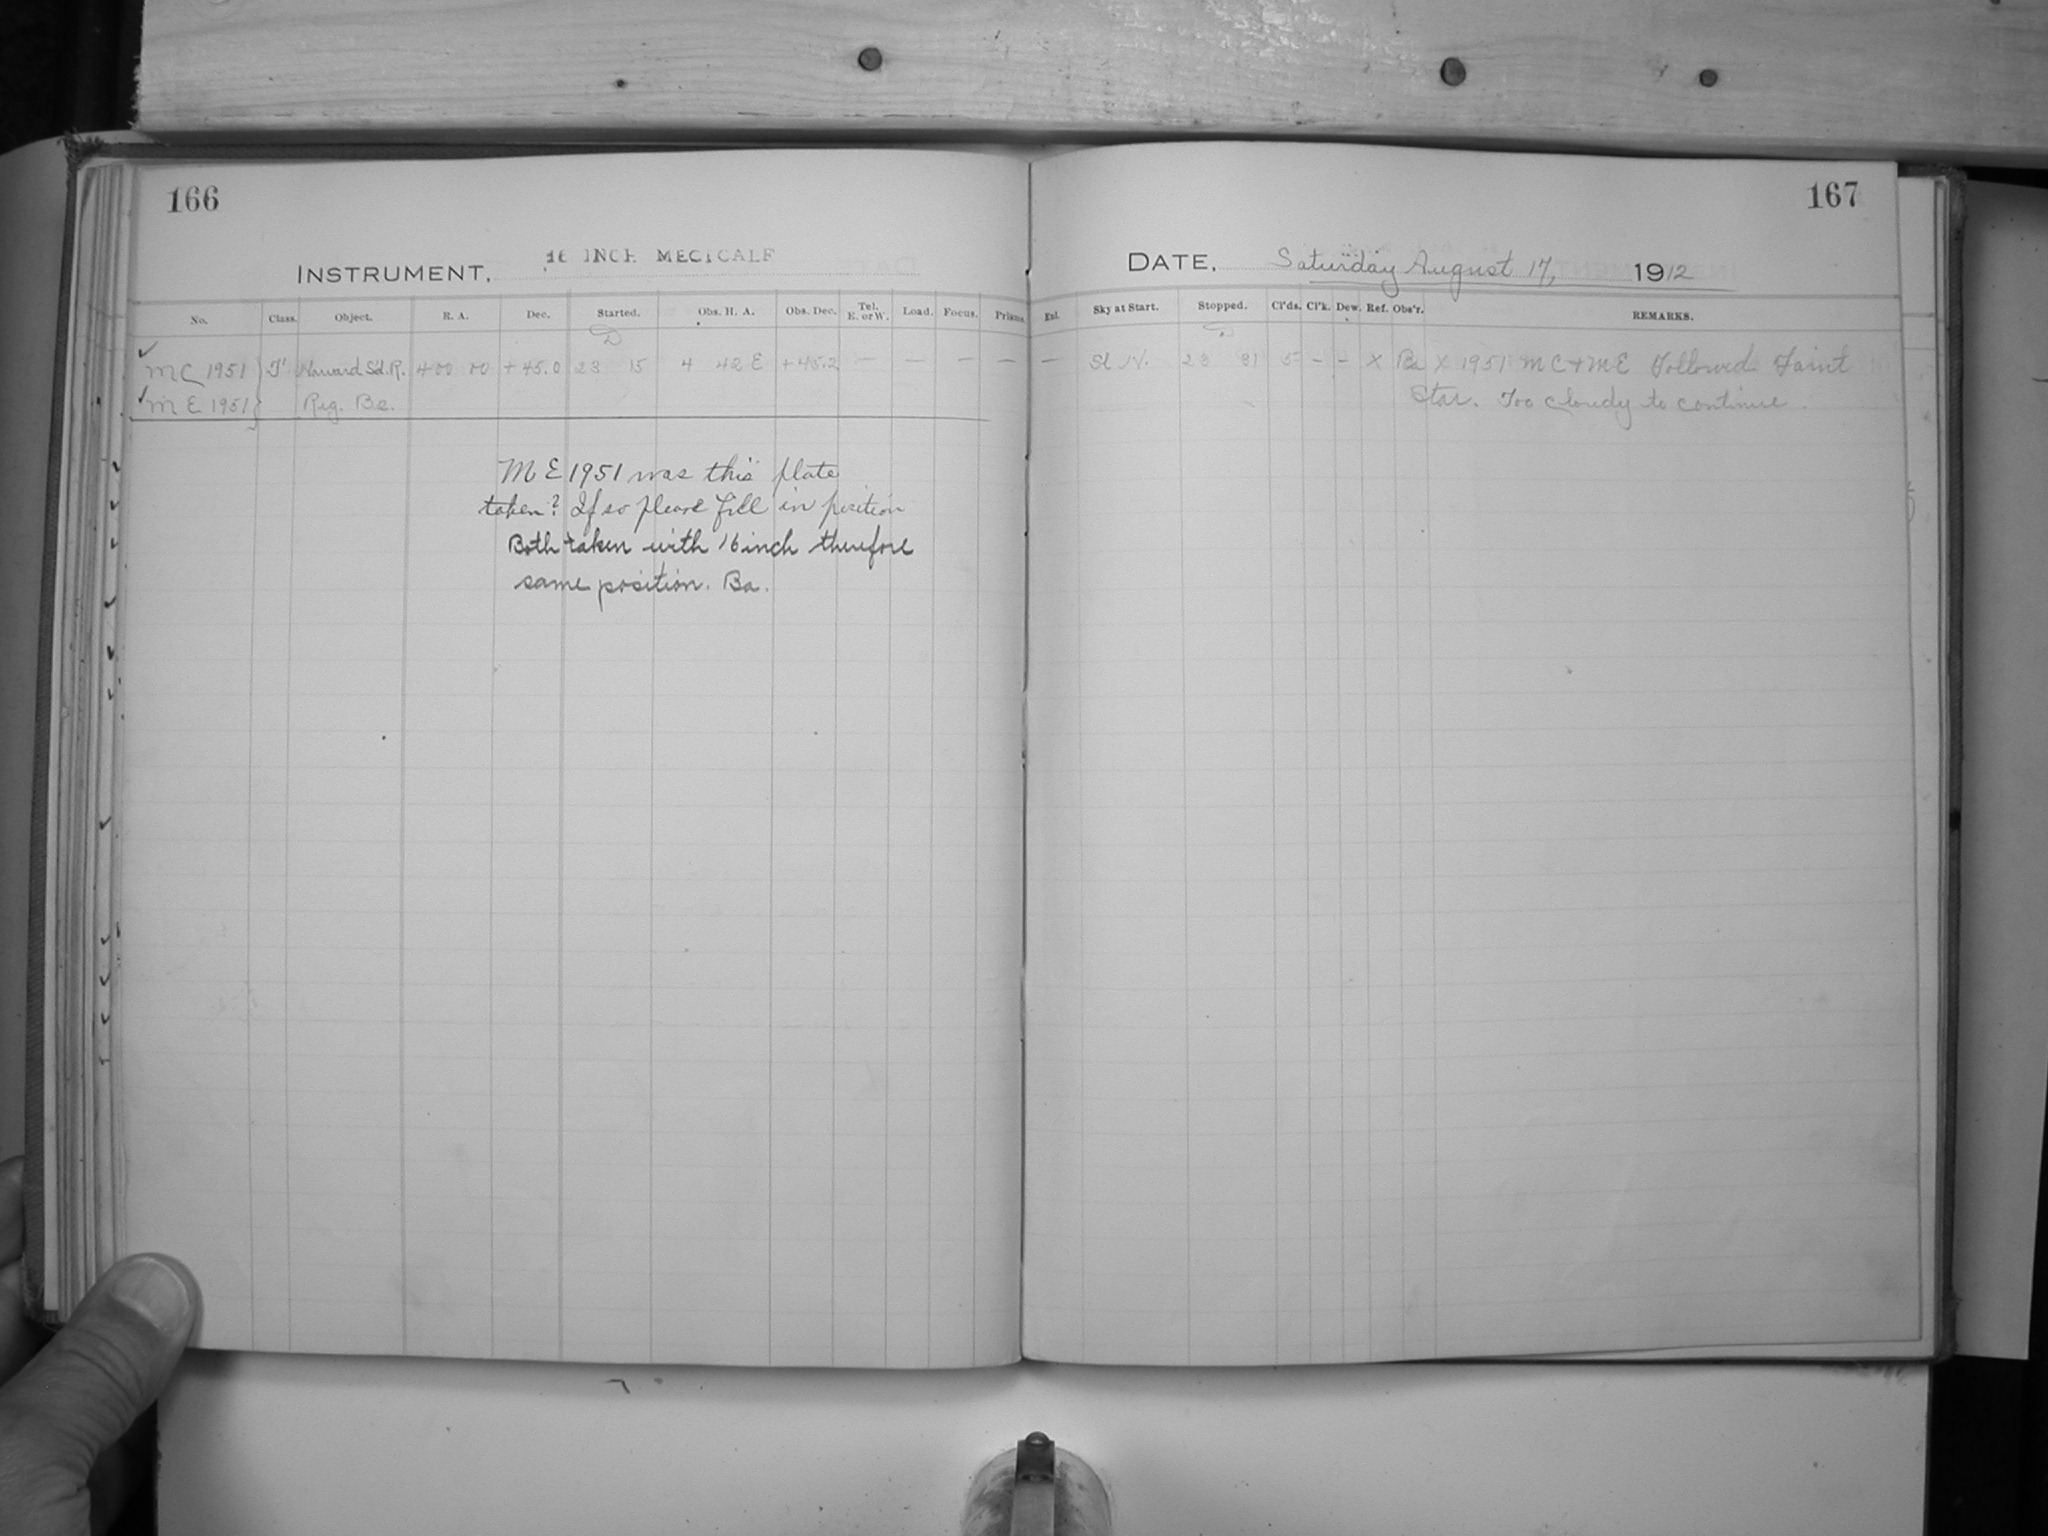 166
INSTRUMENT. 16 INCH METCALF
No. Class. Object. R. A. Dec. Started. Obs. H. A. Obs. Dec. Tel. E. or W. Load. Focus. Prisms.
D
MC 1951 Harvard Sd. R. 4 00 00 +45.0 23 15 4 42 E +45.2 — — — —
ME 1951 Reg. Be.
ME 1951 was this plate
taken? If so please fill in position
Both taken with 16 inch therefore
same position. Ba.
167
DATE. Saturday August 17, 1912
Exl. Sky at Start. Stopped. Cl'ds. Cl'k. Dew. Ref. Obs'r. REMARKS.
— Sl. N. 23 31 5 - - X Ba X 1951 MC + ME Followed Faint
Star. Too cloudy to continue.